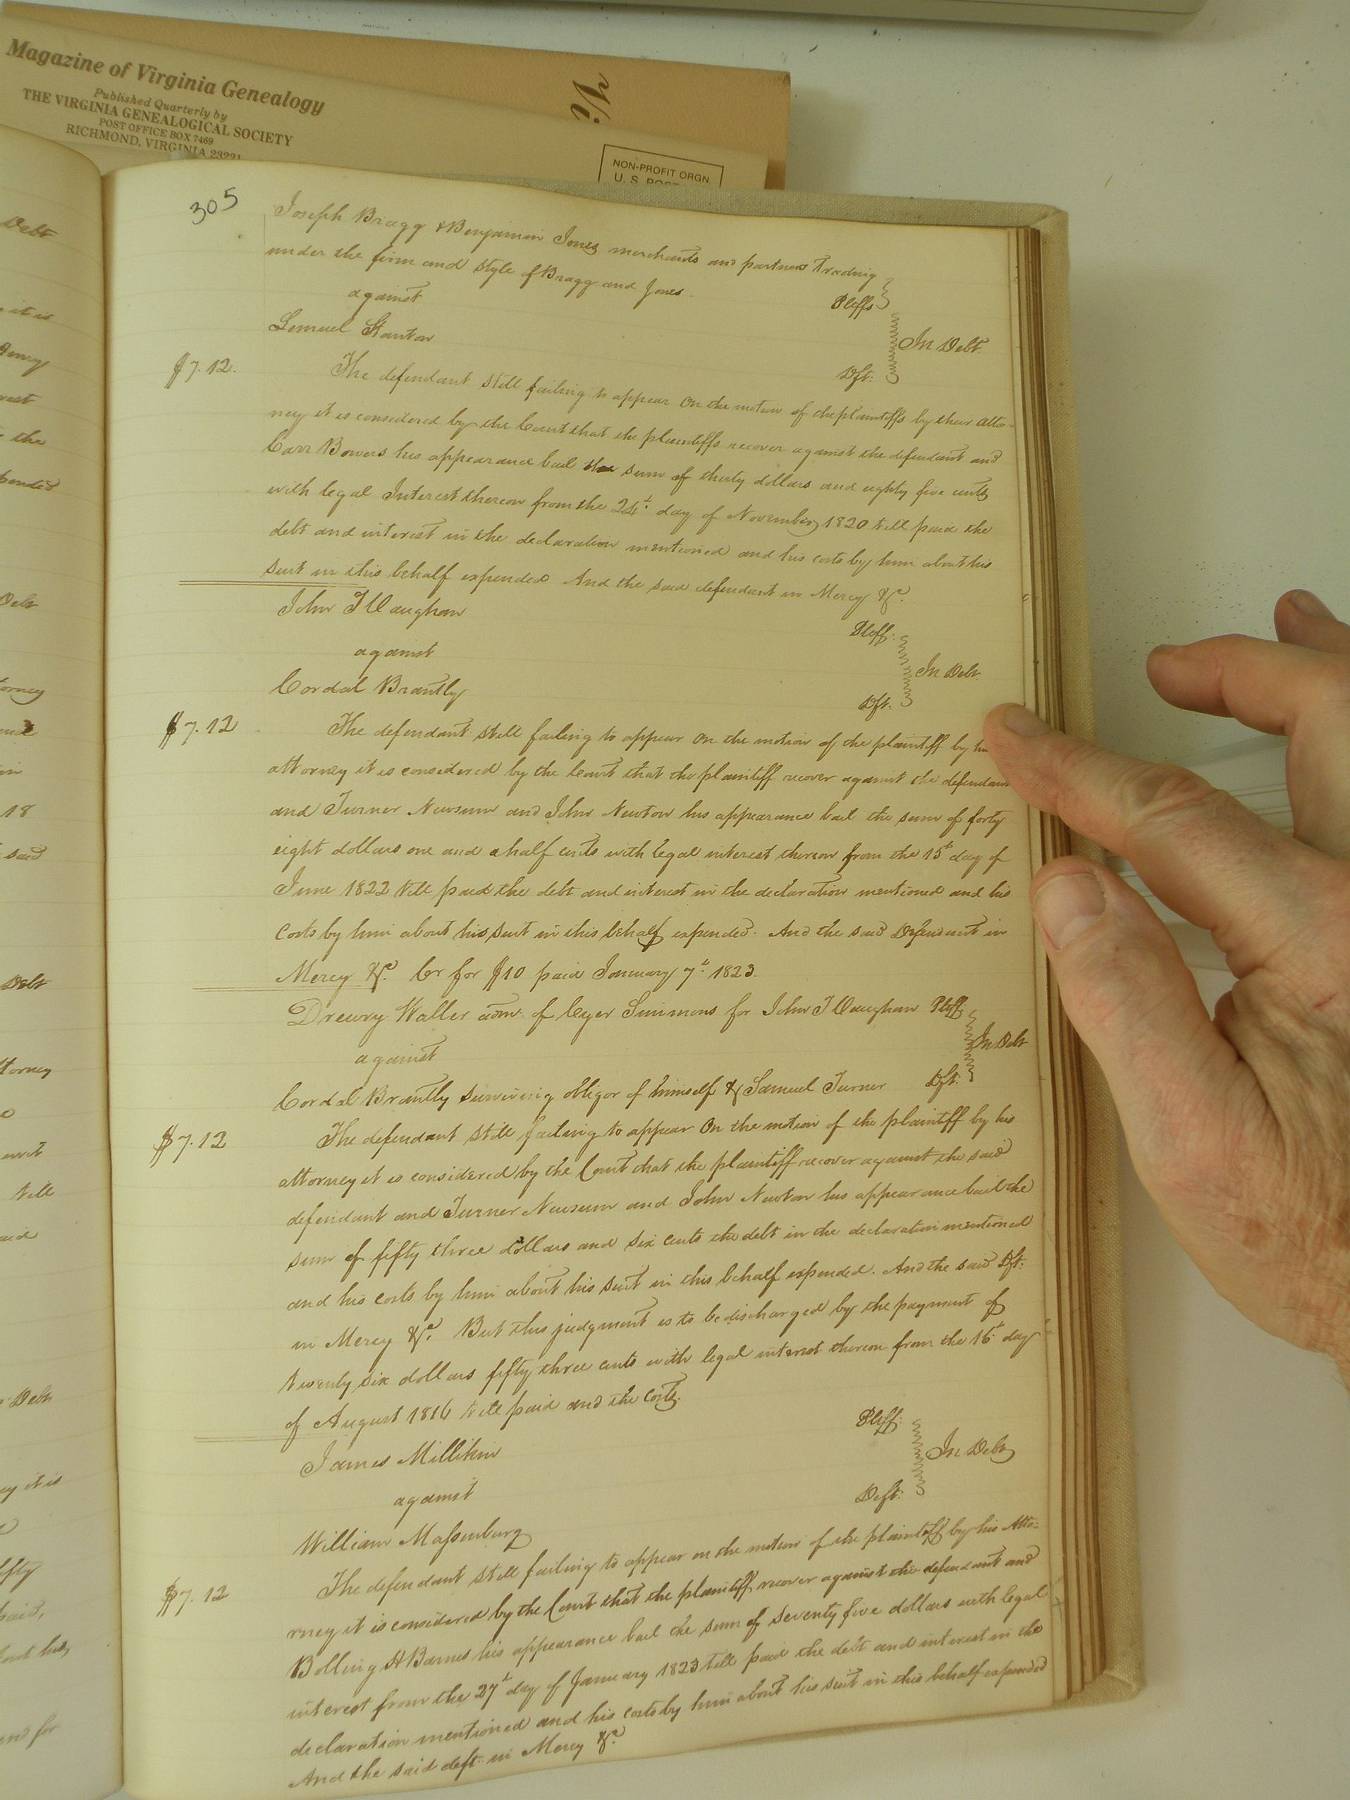 Magazine of Virginia Genealogy
Published Quarterly by
THE VIRGINIA GENEALOGICAL SOCIETY
POST OFFICE BOX 7469
RICHMOND, VIRGINIA 23221
NON-PROFIT ORGN.
U. S. POST
305
Joseph Bragg & Benjamin Jones merchants and partners Trading
under the firm and style of Bragg and Jones. Pleffs
against
In Debt
Lemuel Stanton Dft:
$7.12. The defendant still failing to appear On the motion of the plaintiffs by their atto-
ney it is considered by the Court that the plaintiffs recover against the defendant and
Carr Bowers his appearance bail the sum of thirty dollars and eighty five cents
with legal Interest thereon from the 24t. day of November 1820 till paid the
debt and interest in the declaration mentioned and his costs by him about his
suit in this behalf expended And the said defendant in Mercy &c.
John T Vaughan Pleff:
against
In Debt
Cordal Brantly Dft.
$7.12 The defendant still failing to appear On the motion of the plaintiff by his
attorney it is considered by the Court that the plaintiff recover against the defendant
and Turner Newsum and John Newton his appearance bail the sum of forty
eight dollars one and a half cents with legal interest thereon from the 15t day of
June 1822 till paid the debt and interest in the declaration mentioned and his
Costs by him about his suit in this behalf expended. And the said Defendant in
Mercy &c. Cr for $10 paid January 7t. 1823.
Drewry Waller adm. of Cyer Simmons for John T Vaughan Pleff
against
In Debt
Cordal Brantly surviving obligor of himself & Samuel Turner Dft.
$7.12 The defendant still failing to appear On the motion of the plaintiff by his
attorney it is considered by the Court that the plaintiff recover against the said
defendant and Turner Newsum and John Newton his appearance bail the
sum of fifty three dollars and six cents the debt in the declaration mentioned
and his costs by him about his suit in this behalf expended. And the said Dft:
in Mercy &c. But this judgment is to be discharged by the payment of
twenty six dollars fifty three cents with legal interest thereon from the 16t day
of August 1816 till paid and the Costs.
James Millikin Pleff:
against
In Debt
William Massenburg Deft:
$7.12 The defendant still failing to appear on the motion of the plaintiff by his Atto-
rney it is considered by the Court that the plaintiff recover against the defendant and
Bolling H Barnes his appearance bail the sum of Seventy five dollars with legal
interest from the 27t day of January 1823 till paid the debt and interest in the
declaration mentioned and his costs by him about his suit in this behalf expended
And the said deft: in Mercy &c.